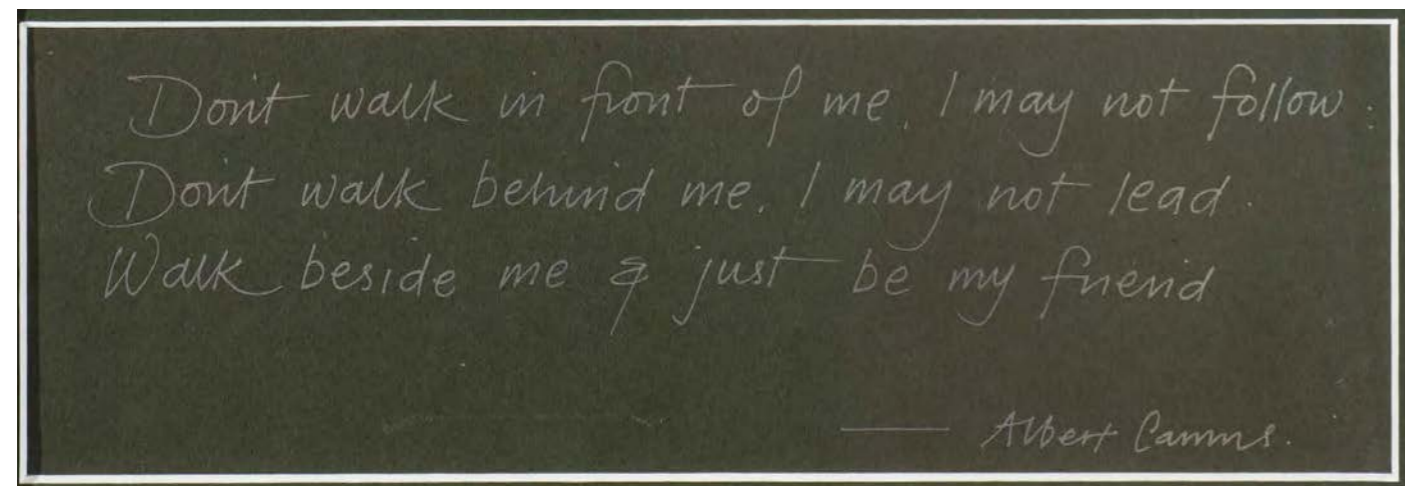 Don't walk in front of me, I may not follow.
Don't walk behind me, I may not lead.
Walk beside me & just be my friend
— Albert Camus.